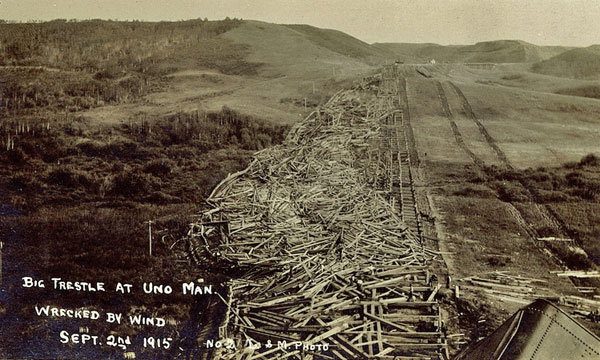 BIG TRESTLE AT UNO MAN.
WRECKED BY WIND
SEPT. 2nd 1915.
& M. PHOTO